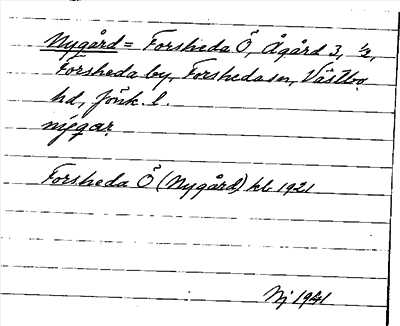 Nygård = Forsheda Ö, Ågård 3, ½,
Forsheda by, Forsheda sn, Västbo
hd, Jönk. l.
Forsheda Ö (Nygård) kb 1921
Nj 1941